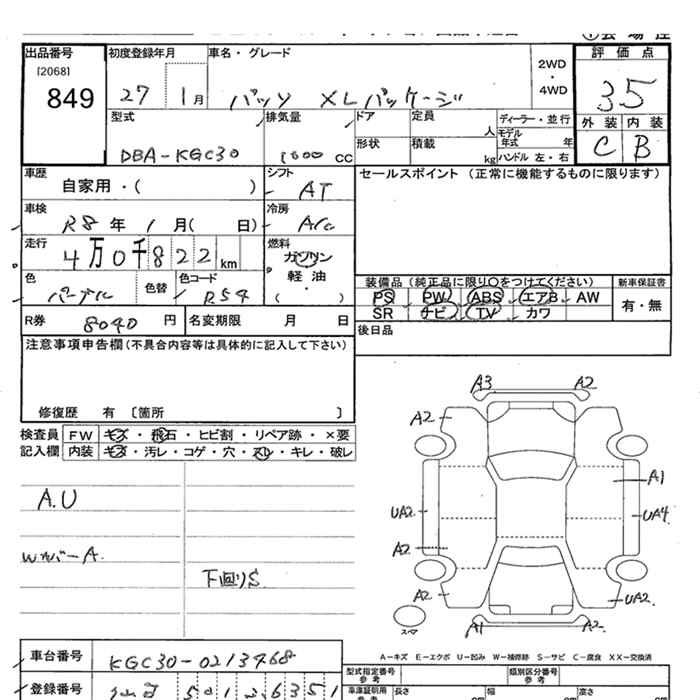 出品番号 初度登録年月 車名・グレード 評価点
[2068]
849 27 1月 パッソ XLパッケージ 2WD・4WD 35
型式 排気量 ドア 定員 人 ディーラー・並行 外装 内装
DBA-KGC30 1000 CC 形状 積載 kg モデル年式 年 ハンドル 左・右 C B
車歴 シフト セールスポイント (正常に機能するものに限ります)
自家用・( ) AT
車検 冷房
R8年 1月( 日) A/C
走行 燃料
4万0千822km ガソリン
軽・油
・( )
色 色替 色コード
パープル R59
装備品 (純正品に限り○をつけてください) 新車保証書
PS PW ABS エアB AW 有・無
SR ナビ TV カワ
R券 8040円 名変期限 月 日 後日品
注意事項申告欄 (不具合内容等は具体的に記入して下さい)
修復歴 有 〔箇所 〕
検査員 FW キズ・飛石・ヒビ割・リペア跡・×要
記入欄 内装 キズ・汚レ・コゲ・穴・スレ・キレ・破レ
A.U
Wカバー A.
下回りS
A3 A2
A2
A1
UA2 UA4
A2
A2 UA2
A1 A2
スペア
A-キズ E-エクボ U-凹み W-補修跡 S-サビ C-腐食 XX-交換済
車台番号 KGC30-0213468
型式指定番号 類別区分番号
参考 参考
登録番号 501 6351
車庫証明用 長さ 幅 高さ